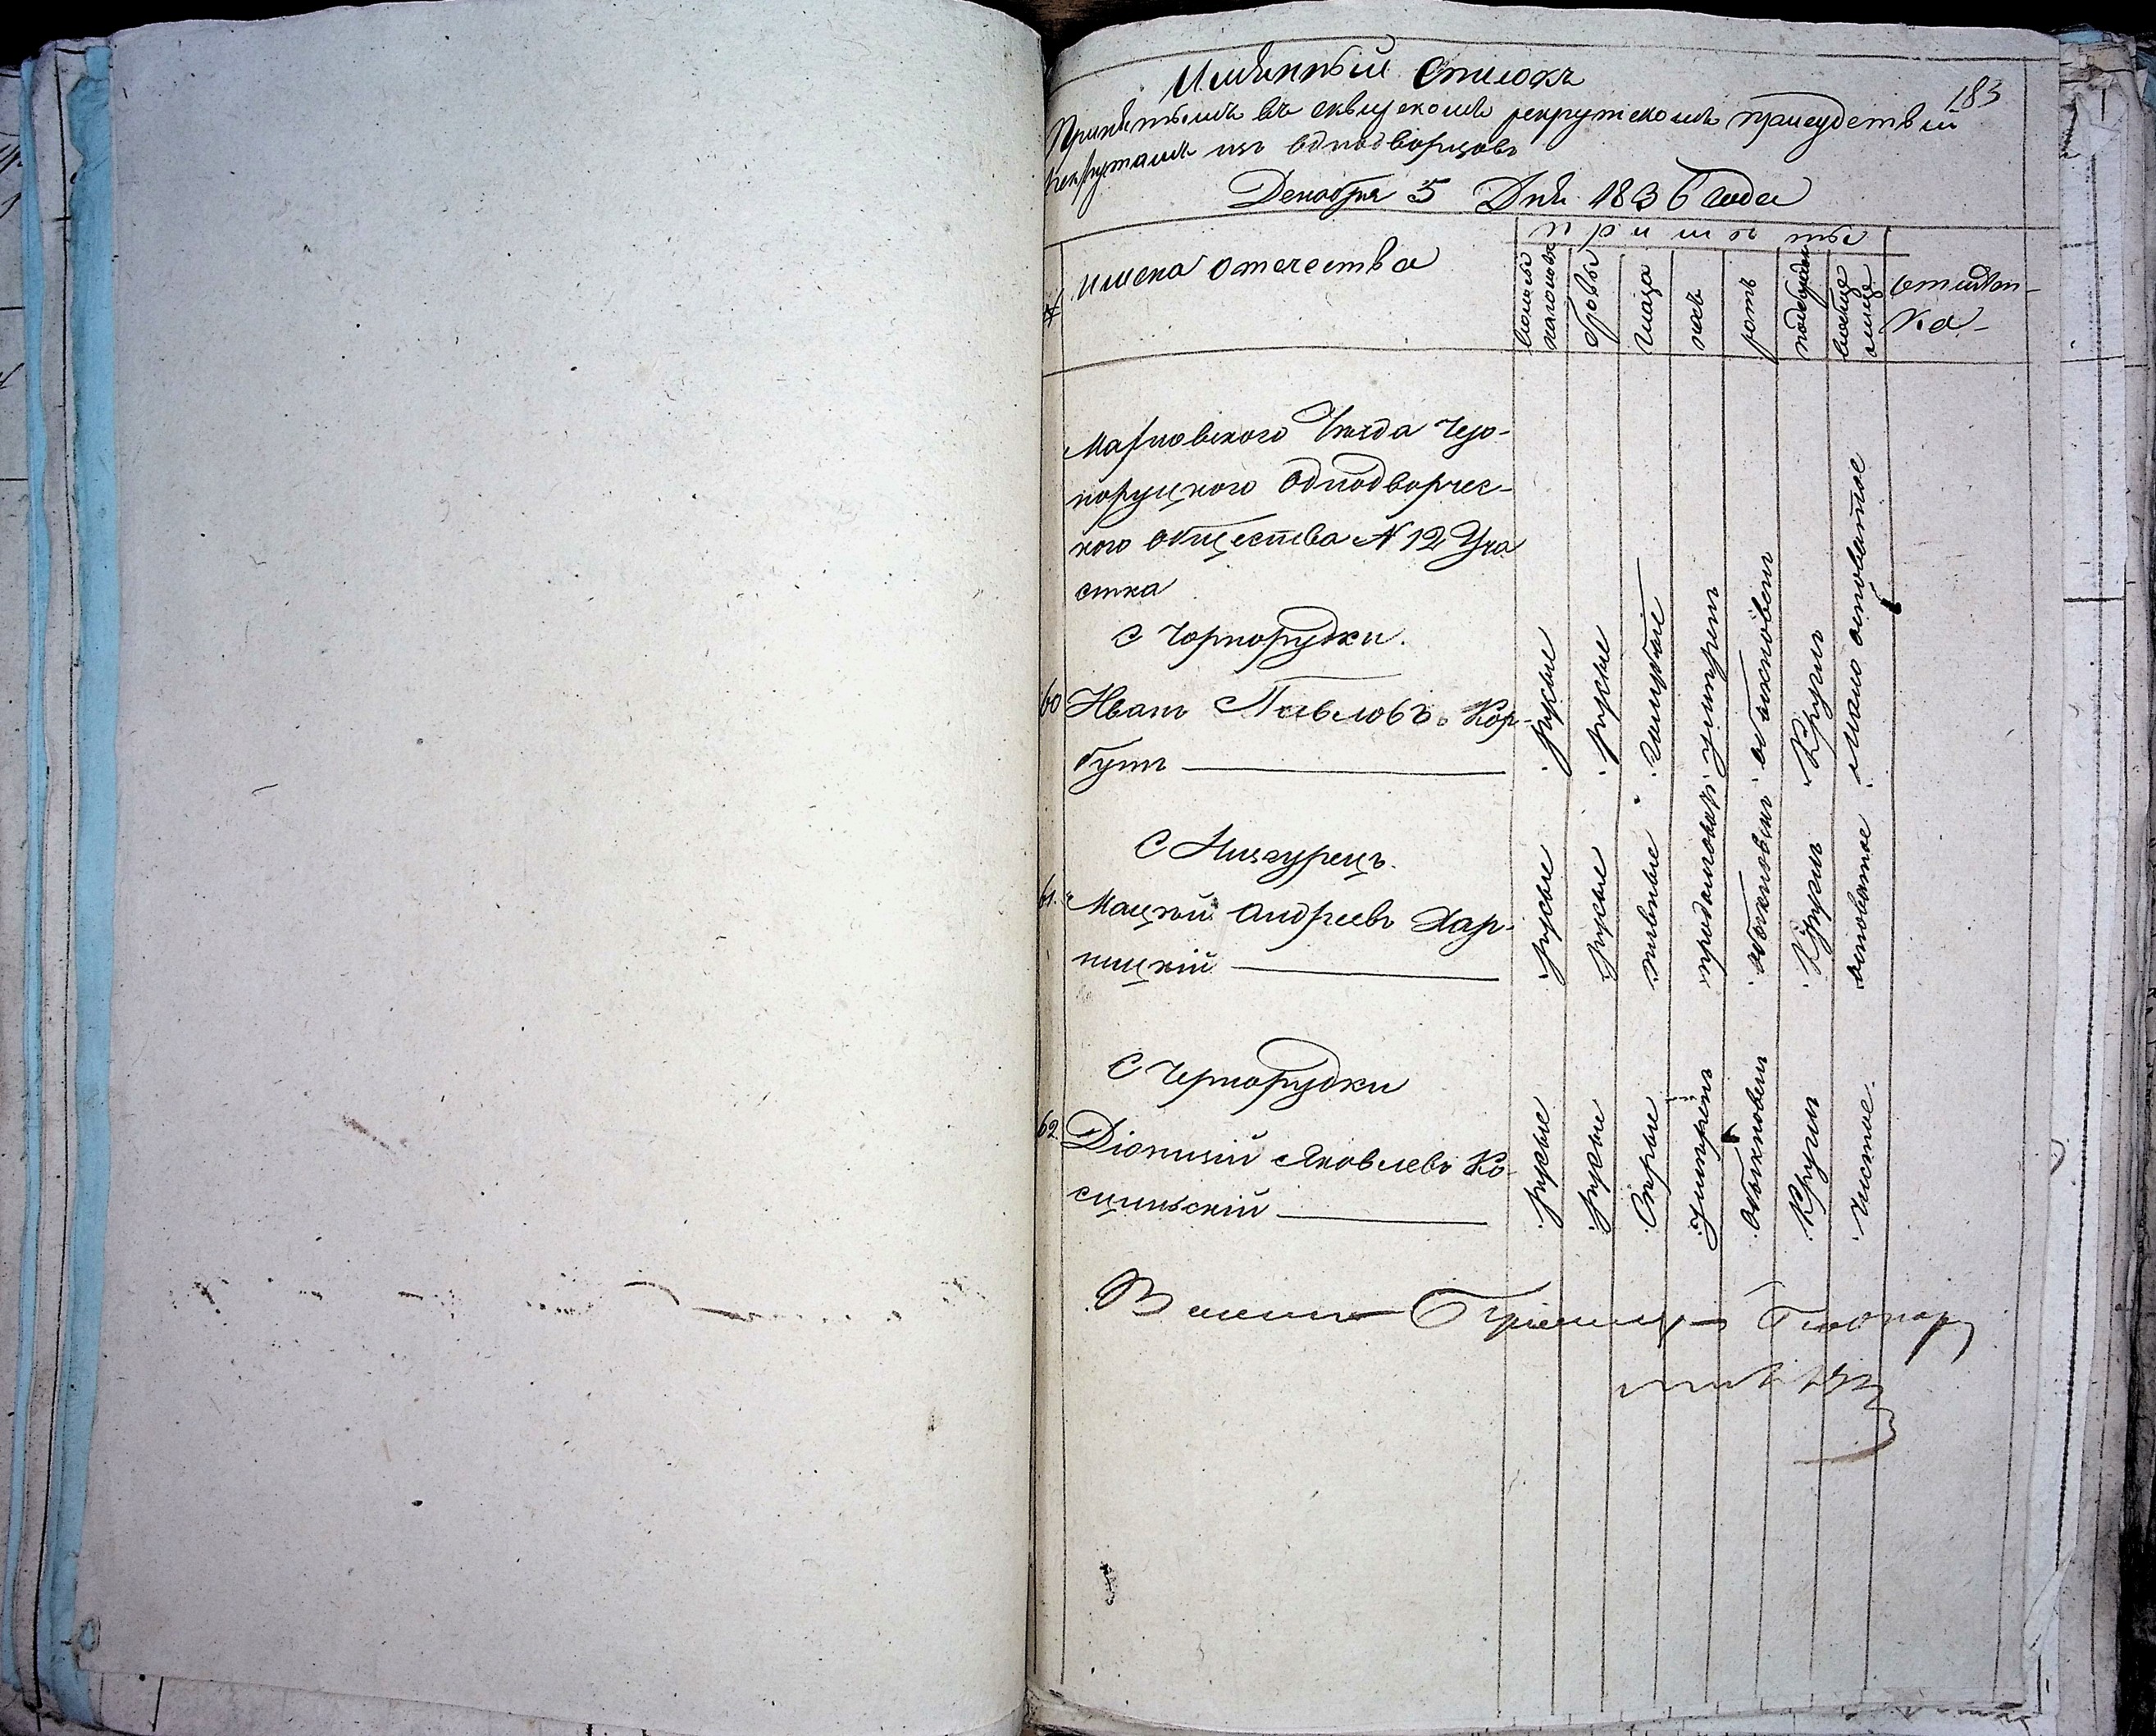 Имянный Списокъ
183
Принятымъ въ сквирскомъ рекрутскомъ присудствіи
рекрутамъ изъ Однодворцовъ
Декабря 5 Дня 1836 Года
№
имена отечества
примѣты
волосы на головѣ
бровы
глаза
носъ
ротъ
подбородокъ
вобще лице
отмѣт-
ка
Махновского Уѣзда Черо-
норуцкого Однодворчес-
кого Общества № 12 Уча
стка
С Чорнорудки.
60 Иванъ Павловъ Кор-
бутъ
русые
русые
голубые
умѣренъ
обыкновенъ
Круглъ
мало оповатое
С Низгурецъ.
61. Мацѣй Андреевъ Хар-
ницкій
русые
русые
пивные
продолговатъ
обыкновенъ
Круглъ
оповатое
С Чернорудки
62. Діонизій Яковлевъ Ко-
сцинскій
русые
русые
Сѣрые
Умѣренъ
обыкновенъ
Круглъ
Чистое.